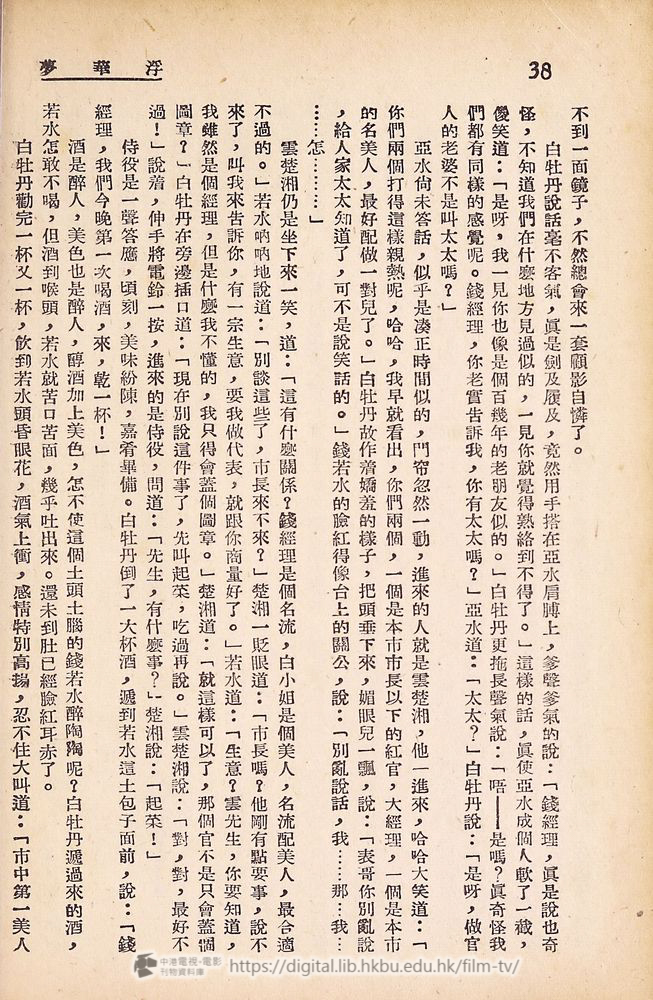 浮華夢
38
不到一面鏡子，不然總會來一套顧影自憐了。
白牡丹說話毫不客氣，眞是劍及履及，竟然用手搭在亞水肩膊上，爹聲爹氣的說：「錢經理，眞是說也奇
怪，不知道我們在什麼地方見過似的，一見你就覺得熟絡到不得了。」這樣的話，眞使亞水成個人軟了一截，
傻笑道：「是呀，我一見你也像是個百幾年的老朋友似的。」白牡丹更拖長聲氣說：「唔——是嗎？眞奇怪我
們都有同樣的感覺呢。錢經理，你老實告訴我，你有太太嗎？」亞水道：「太太？」白牡丹說：「是呀，做官
人的老婆不是叫太太嗎？」
亞水尙未答話，似乎是湊正時間似的，門帘忽然一動，進來的人就是雲楚湘，他一進來，哈哈大笑道：「
你們兩個打得這樣親熱呢，哈哈，我早就看出，你們兩個，一個是本市市長以下的紅官，大經理，一個是本市
的名美人，最好配做一對兒了。」白牡丹故作着嬌羞的樣子，把頭垂下來，媚眼兒一飄，說：「表哥你別亂說
，給人家太太知道了，可不是說笑話的。」錢若水的臉紅得像台上的關公，說：「別亂說話，我……那…我…
……怎………」
雲楚湘仍是坐下來一笑，道：「這有什麼關係？錢經理是個名流，白小姐是個美人，名流配美人，最合適
不過的。」若水吶吶地說道：「別談這些了，市長來不來？」楚湘一貶眼道：「市長嗎？他剛有點要事，說不
來了，叫我來告訴你，有一宗生意，要我做代表，就跟你商量好了。」若水道：「生意？雲先生，你要知道，
我雖然是個經理，但是什麼我不懂的，我只得會蓋個圖章。」楚湘道：「就這樣可以了，那個官不是只會蓋個
圖章？」白牡丹在旁邊插口道：「現在別說這件事了，先叫起菜，吃過再說。」雲楚湘說：「對，對，最好不
過！」說着，伸手將電鈴一按，進來的是侍役，問道：「先生，有什麼事？」楚湘說：「起菜！」
侍役是一聲答應，頃刻，美味紛陳，嘉肴畢備。白牡丹倒了一大杯酒，遞到若水這土包子面前，說：「錢
經理，我們今晚第一次喝酒，來，乾一杯！」
酒是醉人，美色也是醉人，醇酒加上美色，怎不使這個土頭土腦的錢若水醉陶陶呢？白牡丹遞過來的酒，
若水怎敢不喝，但酒到喉頭，若水就苦口苦面，幾乎吐出來。還未到肚已經臉紅耳赤了。
白牡丹勸完一杯又一杯，飲到若水頭昏眼花，酒氣上衝，感情特別高揚，忍不住大叫道：「市中第一美人
中港電視-電影
刊物資料庫
https://digital.lib.hkbu.edu.hk/film-tv/